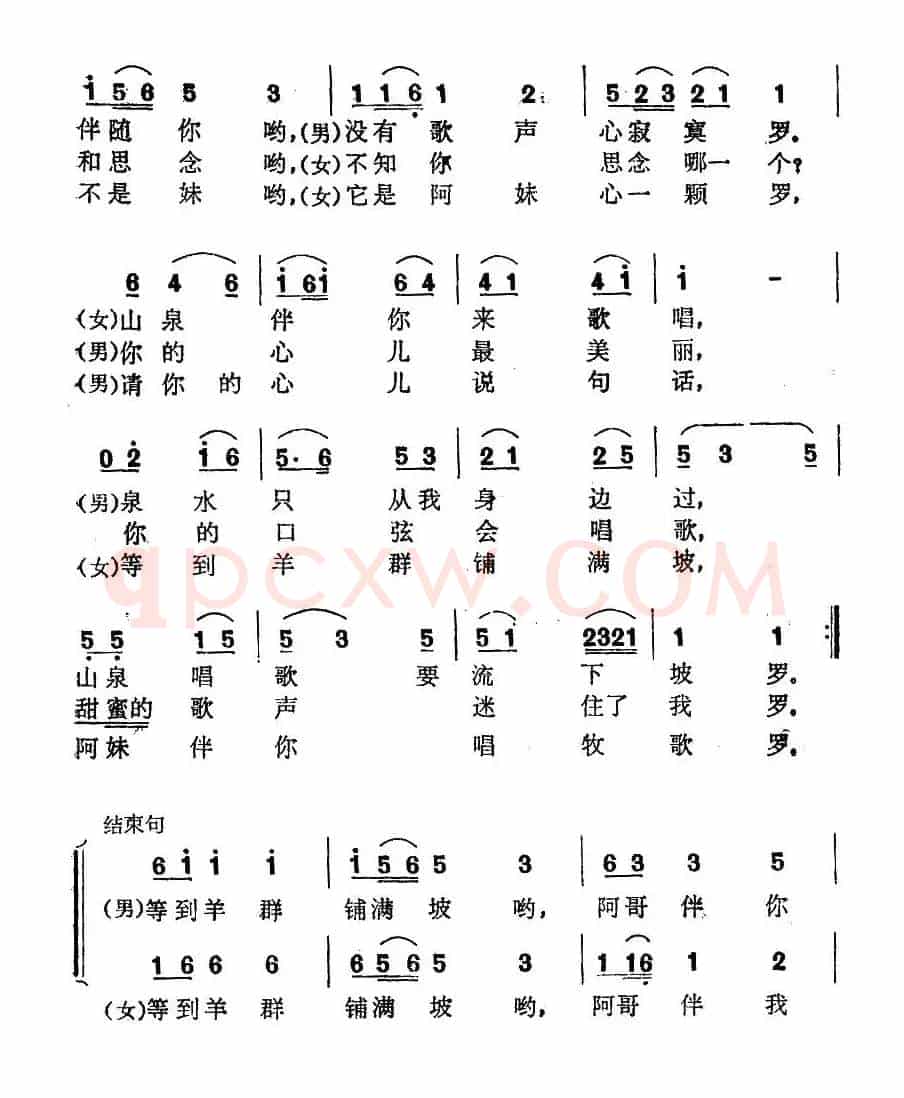 i 5 6 5 3 | 1 1 6 1 2 | 5 2 3 2 1 1 |
伴随你 哟,(男)没有歌声 心寂寞 罗。
和思念 哟,(女)不知你 思念哪一个?
不是妹 哟,(女)它是阿妹 心一颗 罗,
6 4 6 | i 6 i 6 4 | 4 1 4 i | i - |
(女)山泉 伴你 来歌 唱,
(男)你的 心儿 最美 丽,
(男)请你的 心儿 说句 话,
0 2 i 6 | 5· 6 5 3 | 2 1 2 5 | 5 3 5 |
(男)泉水 只从我 身边 过,
你的 口弦 会唱 歌,
(女)等到 羊群 铺满 坡,
qpcxw.COM
5 5 1 5 | 5 3 5 | 5 1 2321 | 1 1 :‖
山泉唱 歌要 流下 坡罗。
甜蜜的歌 声 迷住了 我罗。
阿妹伴 你 唱牧 歌罗。
结束句
6 i i i | i 5 6 5 3 | 6 3 3 5 |
(男)等到羊群 铺满坡 哟, 阿哥伴你
1 6 6 6 | 6 5 6 5 3 | 1 1 6 1 2 |
(女)等到羊群 铺满坡 哟, 阿哥伴我